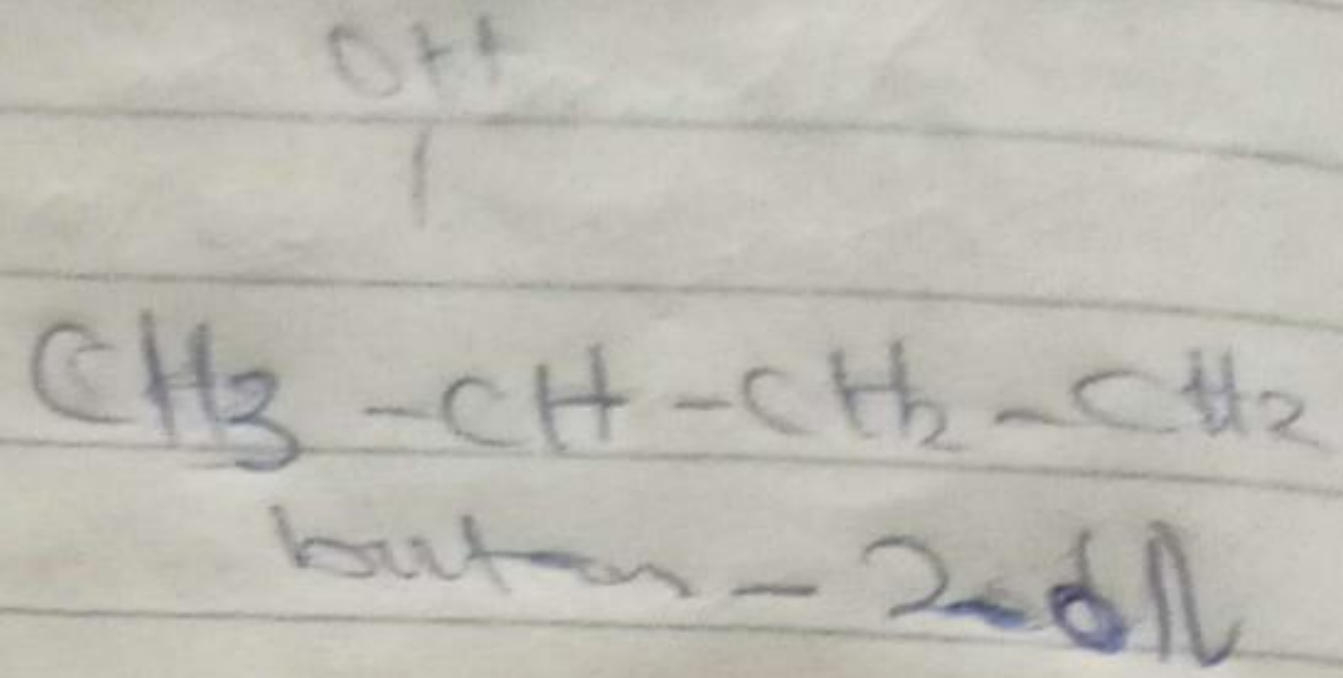 OH
|
CH3 - CH - CH2 - CH2
butan - 2-ol